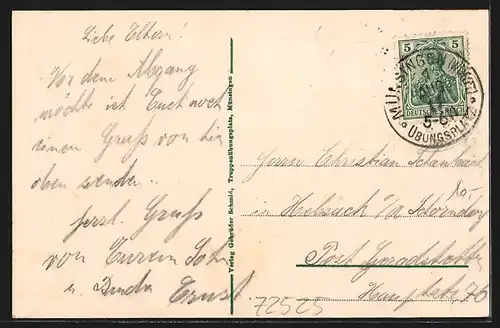 Liebe Eltern!
Vor dem Abgang
möchte ich Euch noch
einen Gruß von hier
oben senden.
herzl. Gruß
von Eurem Sohn
u. Bruder Ernst.
Verlag Gebrüder Schmid, Truppenübungsplatz, Münsingen
5 5
DEUTSCHES REICH
MÜNSINGEN (WÜRTT)
5-6N
ÜBUNGSPLATZ
Herrn Christian
in a/ Schorndorf
Post
Hauptstr. 76
10.-
72525